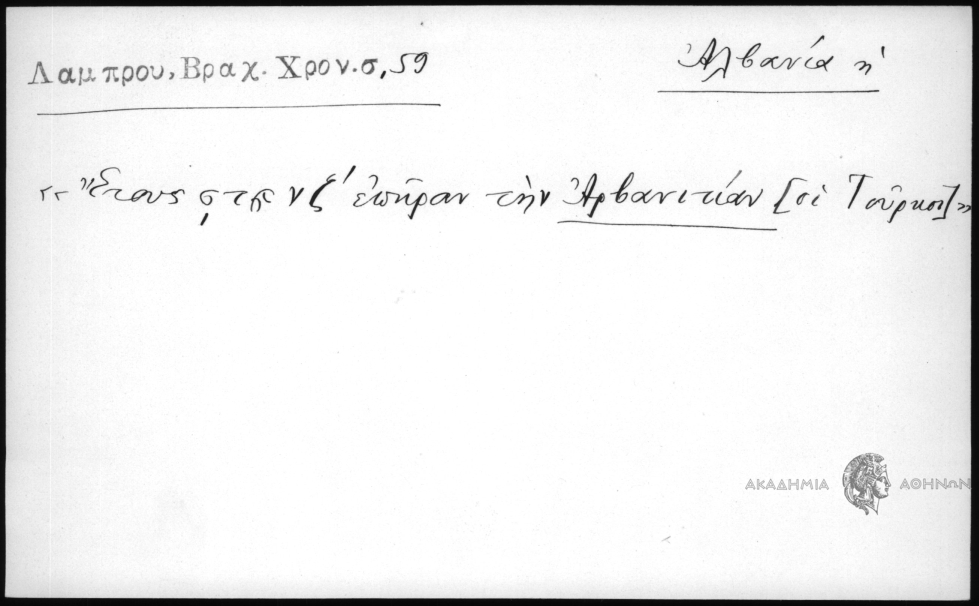 Λαμπρου, Βραχ. Χρον. σ, 59
Ἀλβανία ἡ
«Ἔτους ͵ςτπ νζ' ἐπῆραν τὴν Ἀρβανιτίαν [οἱ Τοῦρκοι]»
ΑΚΑΔΗΜΙΑ ΑΘΗΝΩΝ